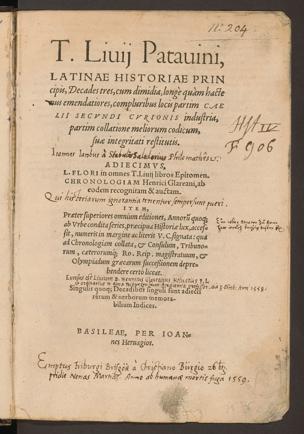 N: 204
T. Liuij Patauini,
LATINAE HISTORIAE PRIN
cipis, Decades tres, cum dimidia, longè quàm hacte
nus emendatiores, compluribus locis partim CAE
LII SECVNDI CVRIONIS industria,
partim collatione meliorum codicum,
suæ integritati restitutis.
Hist IV
F 906
ADIECIMVS,
L. FLORI in omnes T. Liuij libros Epitomen.
CHRONOLOGIAM Henrici Glareani, ab
eodem recognitam & auctam.
Qui historiarum ignorantia tenentur semper sunt pueri.
ITEM,
Præter superiores omnium editiones, Annorū quoq;
ab Vrbe condita series, præcipua Historiæ lux, accessit,
numeris in margine ac literit V. C. signata: qua
ad Chronologiam collata, & Consulum, Tribunorum,
cæterorumq; Ro. Reip. magistratuum, &
Olympiadum græcarum successionem deprehendere
certò liceat.
Singulis quoq; Decadibus singuli sunt adiecti
rerum & uerborum memorabilium
Indices.
BASILEAE, PER IOANnes
Heruagios.
Emptus Friburgi Brisgoiæ à Christiano
Anno ab humana 1559.